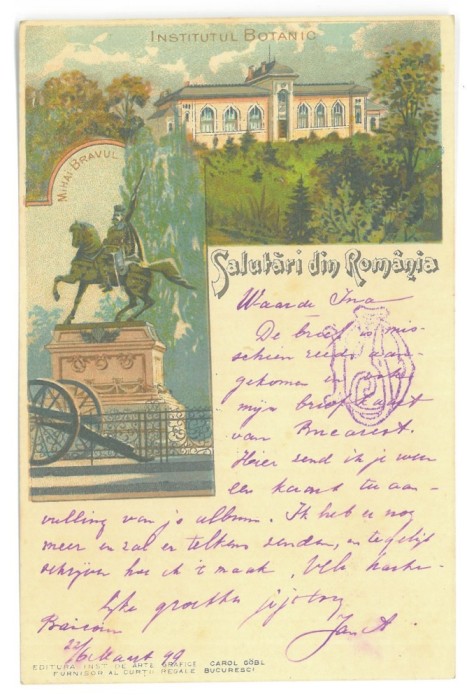 INSTITUTUL BOTANIC
MIHAI BRAVUL
Salutări din România
Waarde Ina
De brief is mis-
schien reeds aan-
gekomen en ook
mijn briefkaart
van Bucarest.
Hier zend ik je weer
een kaart ter aan-
vulling van je album. Ik heb er nog
meer en zal er telkens zenden, en tegelijk
schrijven hoe ik 't maak. Vele harte-
lijke groeten
Jan A
Maart 99
EDITURA INST. DE ARTE GRAFICE CAROL GÖBL
FURNISOR AL CURTII REGALE BUCURESCI